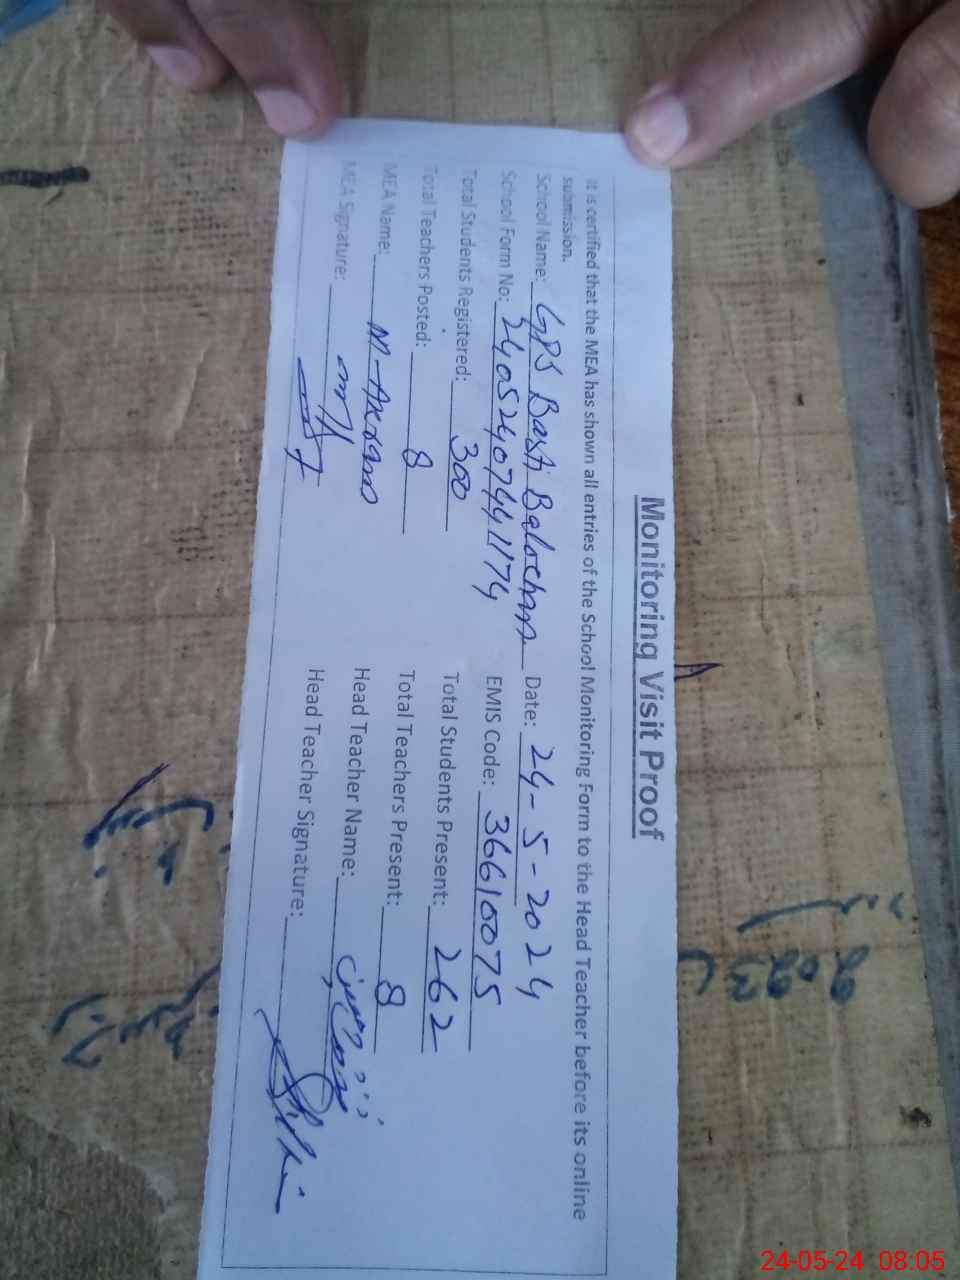 Monitoring Visit Proof
It is certified that the MEA has shown all entries of the School Monitoring Form to the Head Teacher before its online
submission.
School Name: GPS Basti Balochan Date: 24-5-2024
School Form No: 24052407441174 EMIS Code: 36610075
Total Students Registered: 300 Total Students Present: 262
Total Teachers Posted: 8 Total Teachers Present: 8
MEA Name: M-Akram Head Teacher Name:
MEA Signature: Head Teacher Signature:
2023
24-05-24 08:05